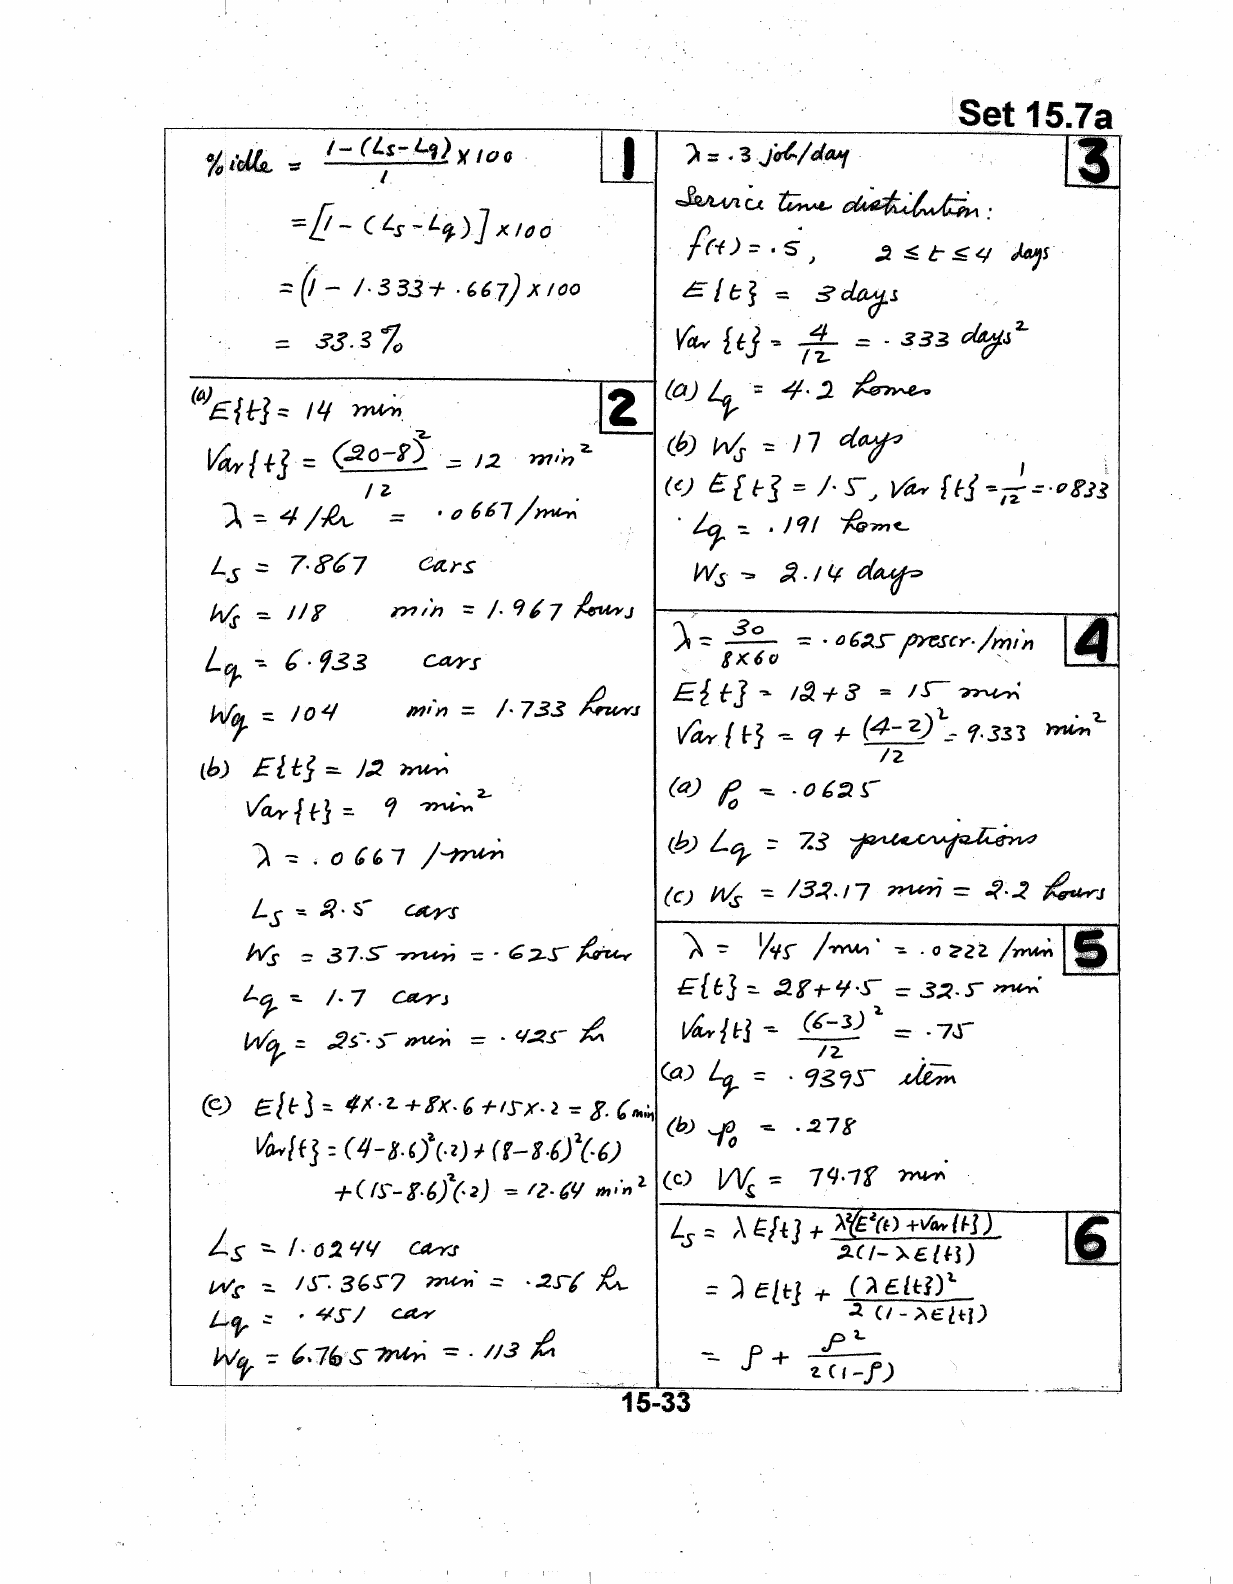 Set 15.7a
1
% idle = (1 - (Ls - Lq)) / 1 x 100
= [1 - (Ls - Lq)] x 100
= (1 - 1.333 + .667) x 100
= 33.3 %
2
(a) E{t} = 14 min
Var{t} = (20-8)² / 12 = 12 min²
λ = 4/hr = .0667/min
Ls = 7.867 cars
Ws = 118 min = 1.967 hours
Lq = 6.933 cars
Wq = 104 min = 1.733 hours
(b) E{t} = 12 min
Var{t} = 9 min²
λ = .0667 /min
Ls = 2.5 cars
Ws = 37.5 min = .625 hour
Lq = 1.7 cars
Wq = 25.5 min = .425 hr
(c) E{t} = 4x.2 + 8x.6 + 15x.2 = 8.6 min
Var{t} = (4-8.6)²(.2) + (8-8.6)²(.6)
+(15-8.6)²(.2) = 12.64 min²
Ls = 1.0244 cars
Ws = 15.3657 min = .256 hr
Lq = .451 car
Wq = 6.765 min = .113 hr
3
λ = .3 job/day
Service time distribution:
f(t) = .5, 2 ≤ t ≤ 4 days
E{t} = 3 days
Var {t} = 4/12 = .333 days²
(a) Lq = 4.2 homes
(b) Ws = 17 days
(c) E{t} = 1.5, Var {t} = 1/12 = .0833
Lq = .191 home
Ws = 2.14 days
4
λ = 30 / 8x60 = .0625 prescr./min
E{t} = 12+3 = 15 min
Var{t} = 9 + (4-2)² / 12 = 9.333 min²
(a) p₀ = .0625
(b) Lq = 7.3 prescriptions
(c) Ws = 132.17 min = 2.2 hours
5
λ = 1/45 /min = .0222 /min
E{t} = 28+4.5 = 32.5 min
Var{t} = (6-3)² / 12 = .75
(a) Lq = .9395 item
(b) p₀ = .278
(c) Ws = 74.78 min
6
Ls = λE{t} + λ²(E²(t) + Var{t}) / 2(1-λE{t})
= λE{t} + (λE{t})² / 2(1-λE{t})
= ρ + ρ² / 2(1-ρ)
15-33